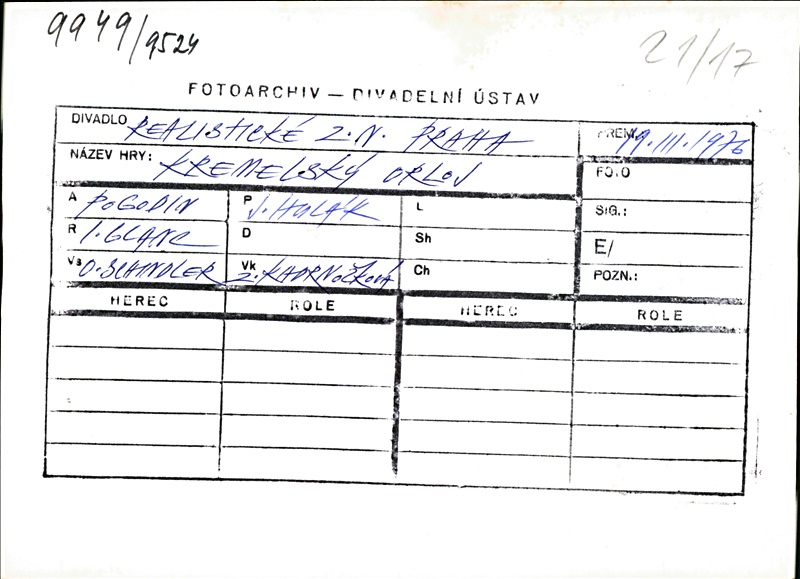 9949/9524
21/17
FOTOARCHIV — DIVADELNÍ ÚSTAV
DIVADLO REALISTICKÉ Z.N. PRAHA
PREM. 19.III.1976
NÁZEV HRY: KREMELSKÝ ORLOJ
FOTO
A POGODIN P J. HULÁK L
SIG.:
R I. GLANC D Sh
E/
Vs O. SCHINDLER Vk Z. KADRNOŽKOVÁ Ch
POZN.:
HEREC ROLE HEREC ROLE